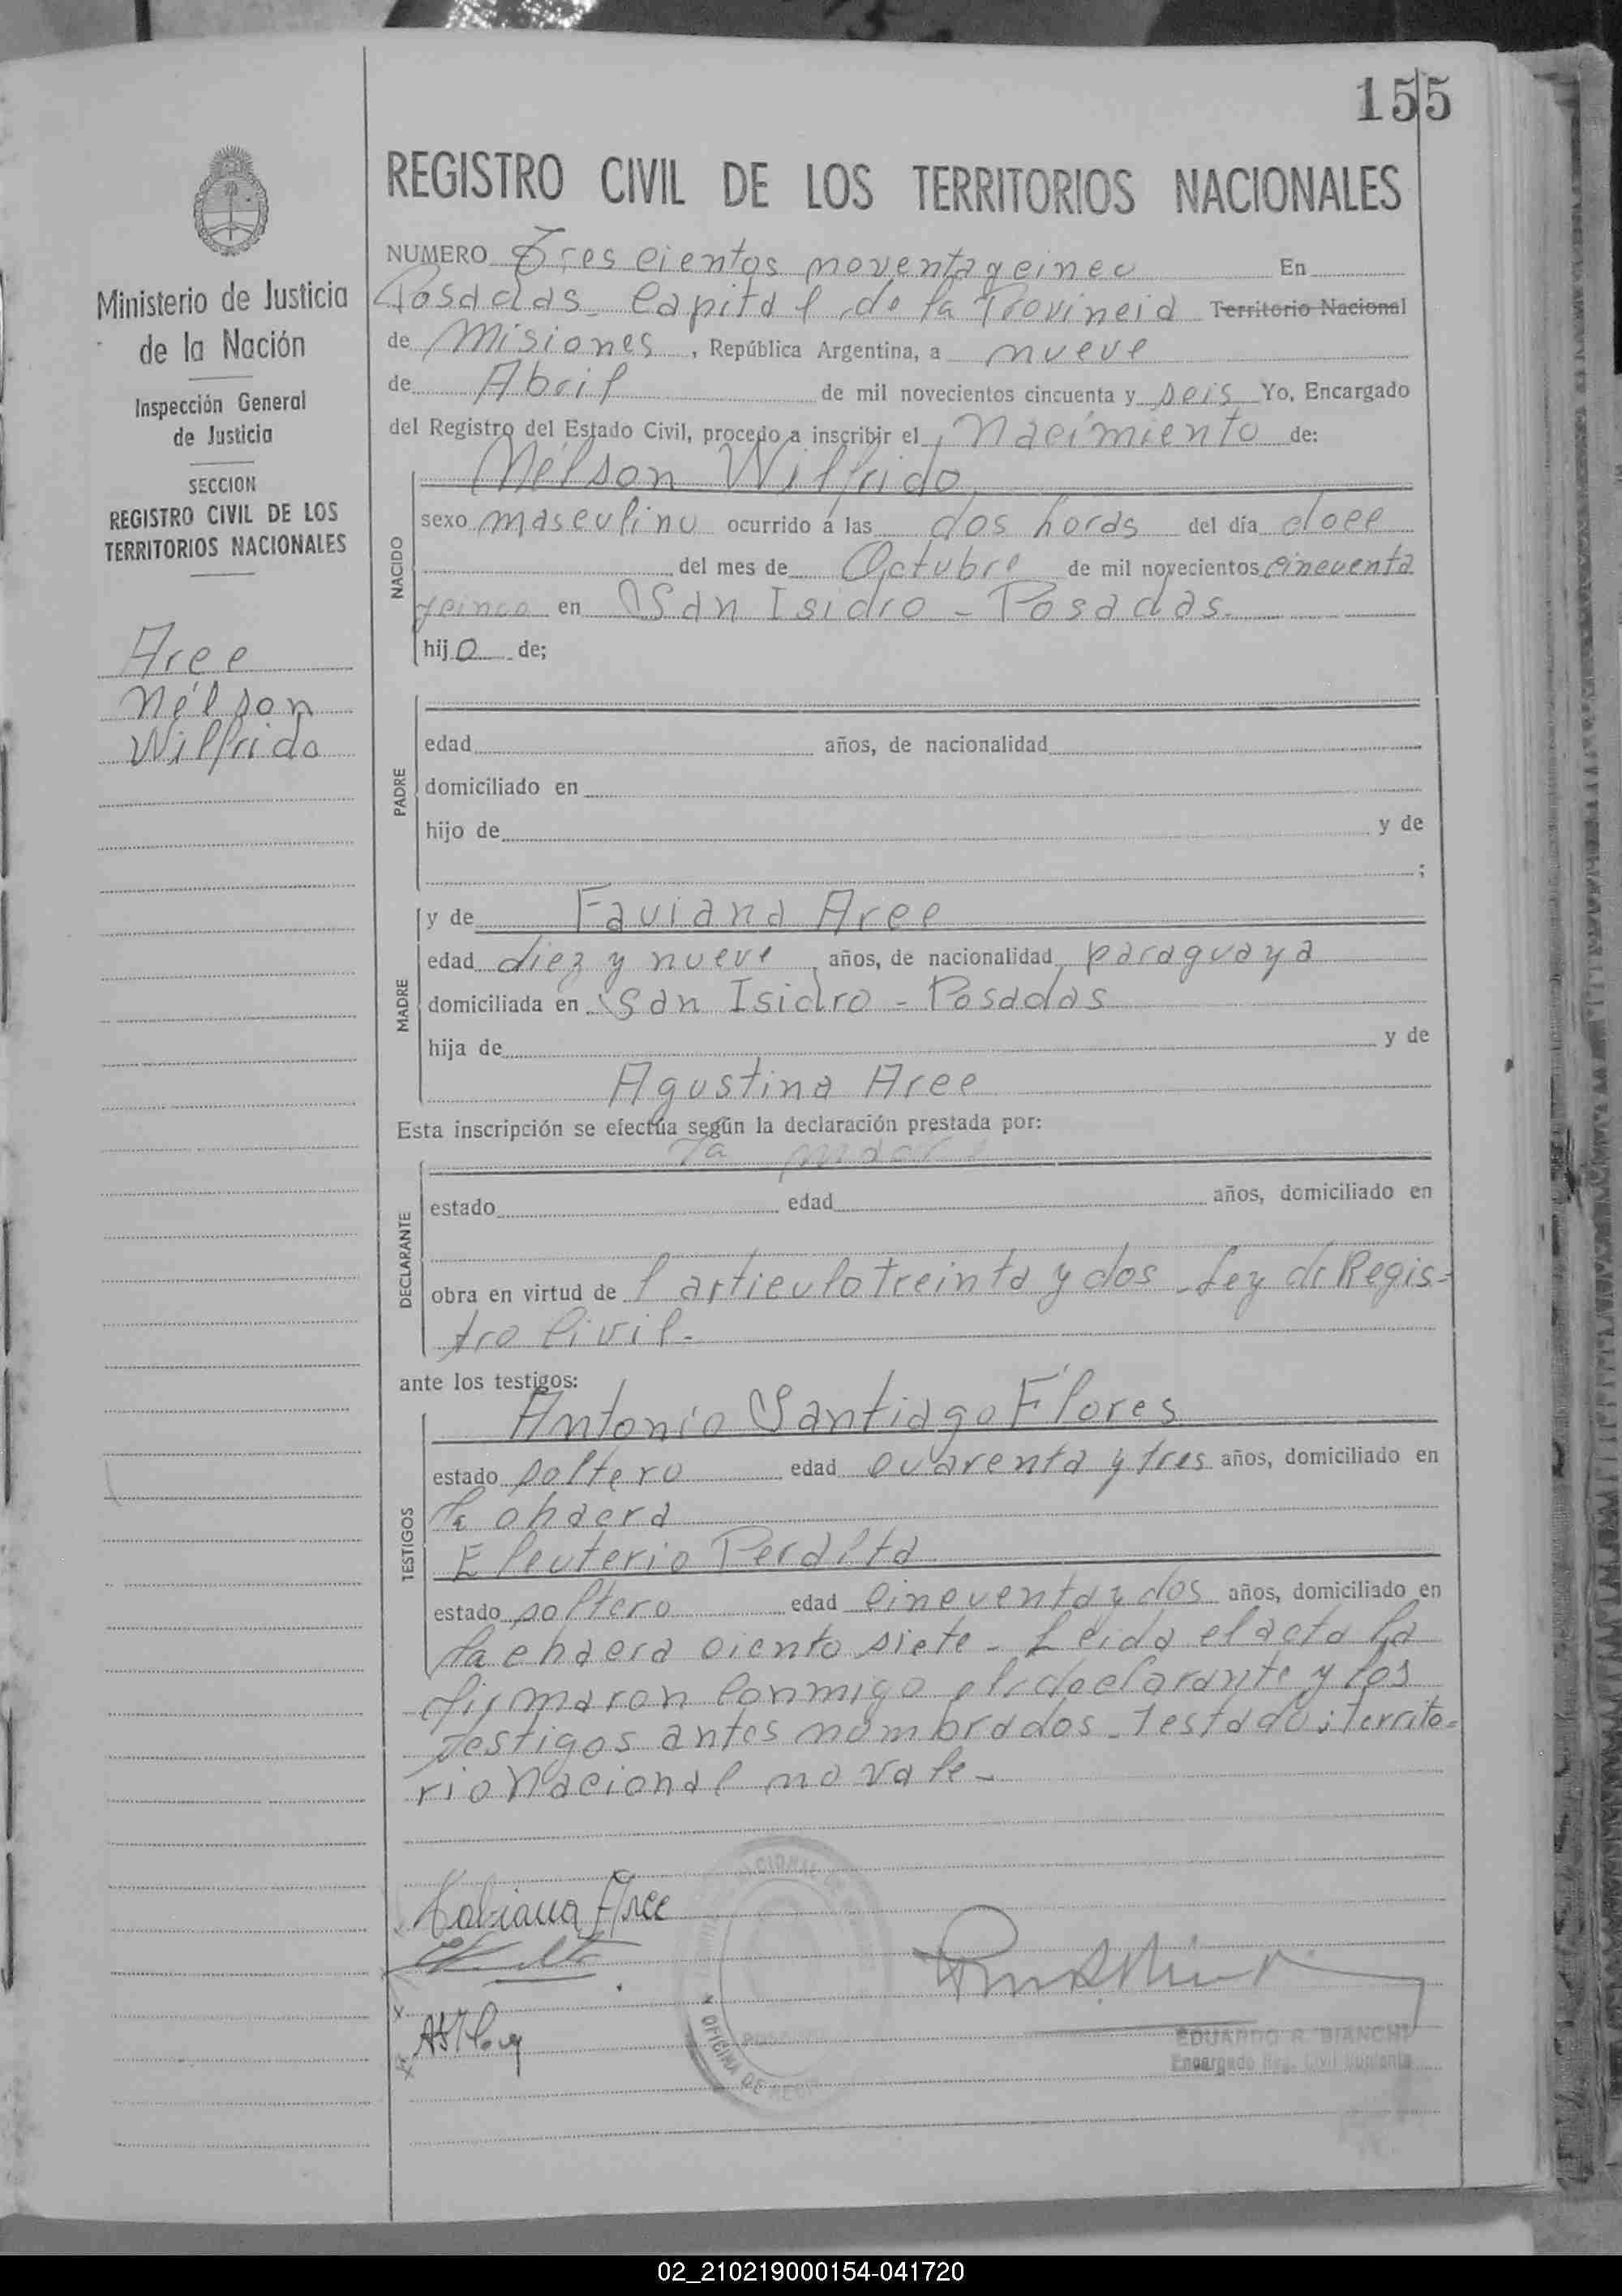 155
REGISTRO CIVIL DE LOS TERRITORIOS NACIONALES
Ministerio de Justicia
de la Nación
Inspección General
de Justicia
SECCION
REGISTRO CIVIL DE LOS
TERRITORIOS NACIONALES
Arce
Nélson
Wilfrido
NUMERO Trescientos noventa y cinco En
Posadas - Capital de la Provincia Territorio Nacional
de Misiones, República Argentina, a nueve
de Abril de mil novecientos cincuenta y seis Yo, Encargado
del Registro del Estado Civil, procedo a inscribir el Nacimiento de:
Nélson Wilfrido
NACIDO
sexo masculino ocurrido á las dos horas del día doce
del mes de Octubre de mil novecientos cincuenta
y cinco en San Isidro - Posadas.
hijo de;
PADRE
edad años, de nacionalidad
domiciliado en
hijo de y de
;
MADRE
y de Faviana Arce
edad diez y nueve años, de nacionalidad paraguaya
domiciliada en San Isidro - Posadas
hija de y de
Agustina Arce
Esta inscripción se efectúa según la declaración prestada por:
la madre
DECLARANTE
estado edad años, domiciliado en
obra en virtud de l articulo treinta y dos - Ley de Regis-
tro Civil.-
ante los testigos:
TESTIGOS
Antonio Santiago Flores
estado soltero edad cuarenta y tres años, domiciliado en
la chacra
Eleuterio Peralta
estado soltero edad cincuenta y dos años, domiciliado en
la chacra ciento siete - Leida el acta la
firmaron conmigo el declarante y los
testigos antes nombrados - Testado: Territo-
rio Nacional no vale -
Fabiana Arce
OFICINA DE
EDUARDO R. BIANCHI
Encargado Reg. Civil Suplente
02_210219000154-041720